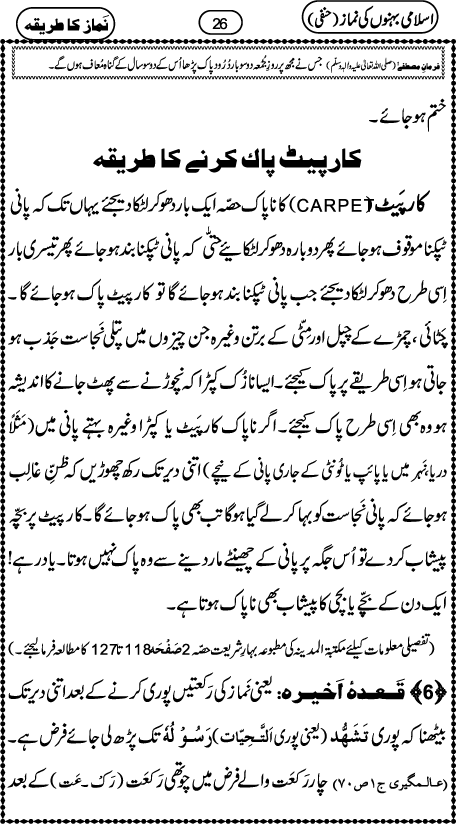 اسلامی بہنوں کی نماز (حنفی)
26
نَماز کا طریقہ
فرمانِ مصطَفٰے (صلی اللہ تعالیٰ علیہ والہ وسلم) جس نے مجھ پر روزِ جُمُعہ دو سو بار دُرُود پاک پڑھا اُس کے دو سو سال کے گناہ مُعاف ہوں گے۔
ختم ہوجائے۔
کارپیٹ پاک کرنے کا طریقہ
کارپَیٹ (CARPET) کا ناپاک حصّہ ایک بار دھو کر لٹکا دیجئے یہاں تک کہ پانی
ٹپکنا موقوف ہوجائے پھر دوبارہ دھو کر لٹکائیے حتّٰی کہ پانی ٹپکنا بند ہوجائے پھر تیسری بار
اِسی طرح دھو کر لٹکا دیجئے جب پانی ٹپکنا بند ہوجائے گا تو کارپیٹ پاک ہوجائے گا ۔
چٹائی ، چمڑے کے چپل اور مِٹّی کے برتن وغیرہ جن چیزوں میں پتلی نَجاست جَذب ہو
جاتی ہو اِسی طریقے پر پاک کیجئے۔ ایسا نازُک کپڑا کہ نچوڑنے سے پھٹ جانے کا اندیشہ
ہو وہ بھی اِسی طرح پاک کیجئے۔ اگر ناپاک کارپَیٹ یا کپڑا وغیرہ بہتے پانی میں (مَثَلًا
دریا، نہر میں یا پائپ یا ٹُونٹی کے جاری پانی کے نیچے) اتنی دیر تک رکھ چھوڑیں کہ ظنِّ غالِب
ہوجائے کہ پانی نَجاست کو بہا کر لے گیا ہوگا تب بھی پاک ہوجائے گا۔ کارپیٹ پر بچّہ
پیشاب کر دے تو اُس جگہ پر پانی کے چھینٹے مار دینے سے وہ پاک نہیں ہوتا۔ یاد رہے!
ایک دن کے بچّے یا بچّی کا پیشاب بھی ناپاک ہوتا ہے۔
(تفصیلی معلومات کیلئے مکتبۃ المدینہ کی مطبوعہ بہارِ شریعت حصّہ 2 صَفْحَہ 118 تا 127 کا مطالعہ فرمالیجئے۔)
﴿6﴾ قَعدۂ اَخیرہ: یعنی نَماز کی رَکعتیں پوری کرنے کے بعد اتنی دیر تک
بیٹھنا کہ پوری تَشَھُّد (یعنی پوری اَلتَّحِیّات) رَسُوْلُہٗ تک پڑھ لی جائے فرض ہے۔
(عالمگیری ج۱ص۷۰) چار رَکعَت والے فرض میں چوتھی رَکعَت (رَکْ۔عَت) کے بعد